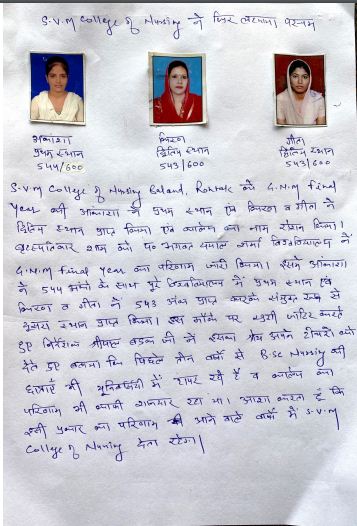 S.V.M College of Nursing ने फिर लहराया परचम
आकांशा
प्रथम स्थान
544/600
किरण
द्वितिय स्थान
543/600
गीता
द्वितिय स्थान
543/600
S.V.M College of Nursing Baland, Rohtak की G.N.M final
Year की आकांशा ने प्रथम स्थान एवं किरण व गीता ने
द्वितिय स्थान प्राप्त किया एवं कालेज का नाम रोशन किया।
शाम को पं० भगवत दयाल शर्मा विश्वविद्यालय ने
G.N.M final Year का परिणाम जारी किया। इसमे आकांशा
ने 544 अंको के साथ पूरे विश्वविद्यालय में प्रथम स्थान एवं
किरण व गीता ने 543 अंक प्राप्त करके संयुक्त रूप से
दूसरा स्थान प्राप्त किया। इस मौके पर खुशी जाहिर करते
हुए निर्देशक ने इसका श्रेय अपने टीचरों को
देते हुए बताया कि पिछले तीन वर्षो से B.Sc Nursing की
छात्राएँ भी यूनिवर्सिटी में टापर रही है व कालेज का
परिणाम भी काफी शानदार रहा था। आशा करता हूँ कि
इसी प्रकार का परिणाम आने वाले वर्षो में S.V.M
College of Nursing देता रहेगा।